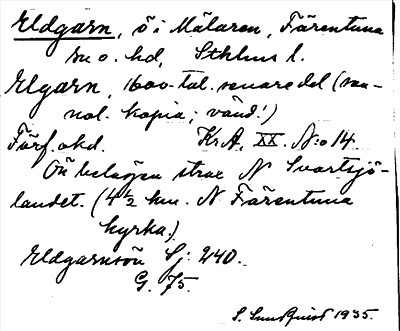 Eldgarn, ö i Mälaren, Färentuna
sn o. hd, Sthlms l.
Elgarn, 1600-tal. senare del (san-
nol. kopia; vänd!)
Förf. okd. Kr.A, XX. N:o 14.
Ön belägen strax N Svartsjö-
landet. (4 1/2 km. N Färentuna
kyrka.)
Eldgarnsön Gj: 240.
G. 75.
S. Sundquist 1935.